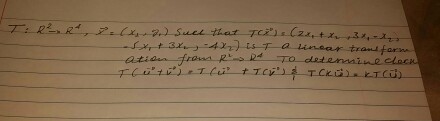 T: R²→R⁴, x⃗ = (x₁, x₂) such that T(x⃗) = (2x₁ + x₂, 3x₁ - x₂,
-5x₁ + 3x₂, -4x₂) is T a linear transform
ation from R² → R⁴ To determine check
T(u⃗+v⃗) = T(u⃗ + T(v⃗) & T(Ku⃗) = KT(u⃗)